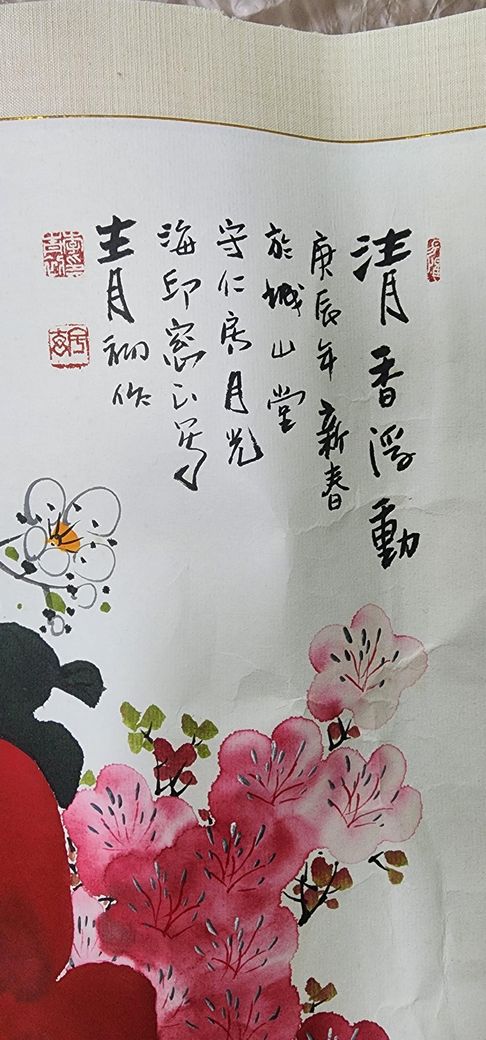 清香浮動
庚辰年新春
於城山堂
守仁房月光
海印窓下
青月初作